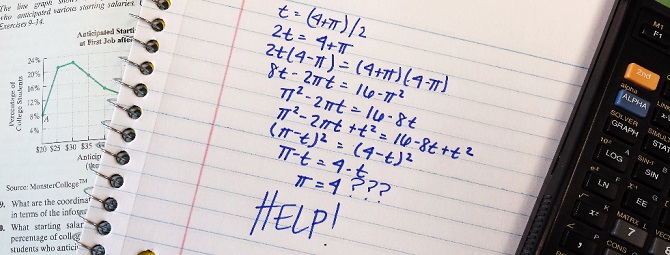 The line graph
who anticipated various starting salaries.
Exercises 9–14.
Anticipated Starti
at First Job after
Percentage of
College Students
24%
20%
16%
12%
8%
4%
A
$20 $25 $30 $35
Anticip
Source: MonsterCollege™
9. What are the coordina
in terms of the informa
What starting salar
percentage of colleg
students who antici
t = (4+π)/2
2t = 4+π
2t(4-π) = (4+π)(4-π)
8t - 2πt = 16-π²
π²-2πt = 16-8t
π²-2πt+t² = 16-8t+t²
(π-t)² = (4-t)²
π-t = 4-t
π = 4 ???
HELP!
M1
F1
2nd
alpha
ALPHA
SOLVER
GRAPH
SIMUL
STAT
10ˣ
LOG
SIN⁻¹
SIN
eˣ
LN
x⁻¹
EE
x²
MATRX
7
VEC
8
,
CONS